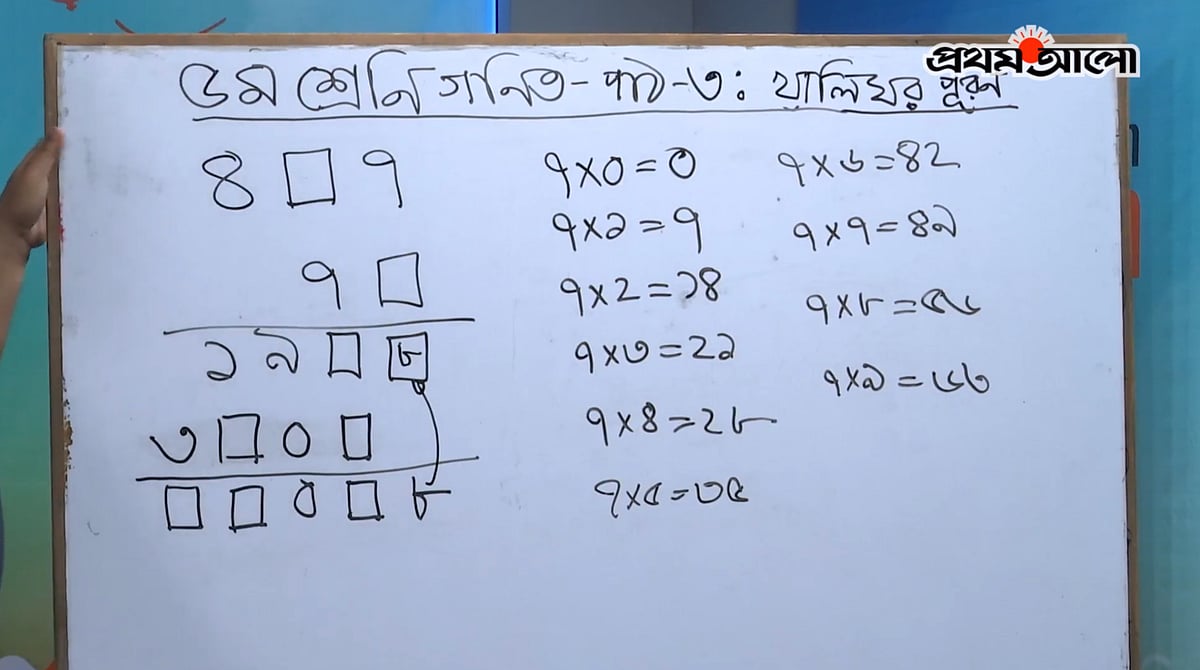 প্রথম আলো
৫ম শ্রেনি গনিত - পাট - ৩ : খালিঘর পূরন
৪ □ ৭
৭ □
১ ৯ □ ৮
৩ □ ০ □
□ □ ০ □ ৮
৭×০=০
৭×১=৭
৭×২=১৪
৭×৩=২১
৭×৪=২৮
৭×৫=৩৫
৭×৬=৪২
৭×৭=৪৯
৭×৮=৫৬
৭×৯=৬৩